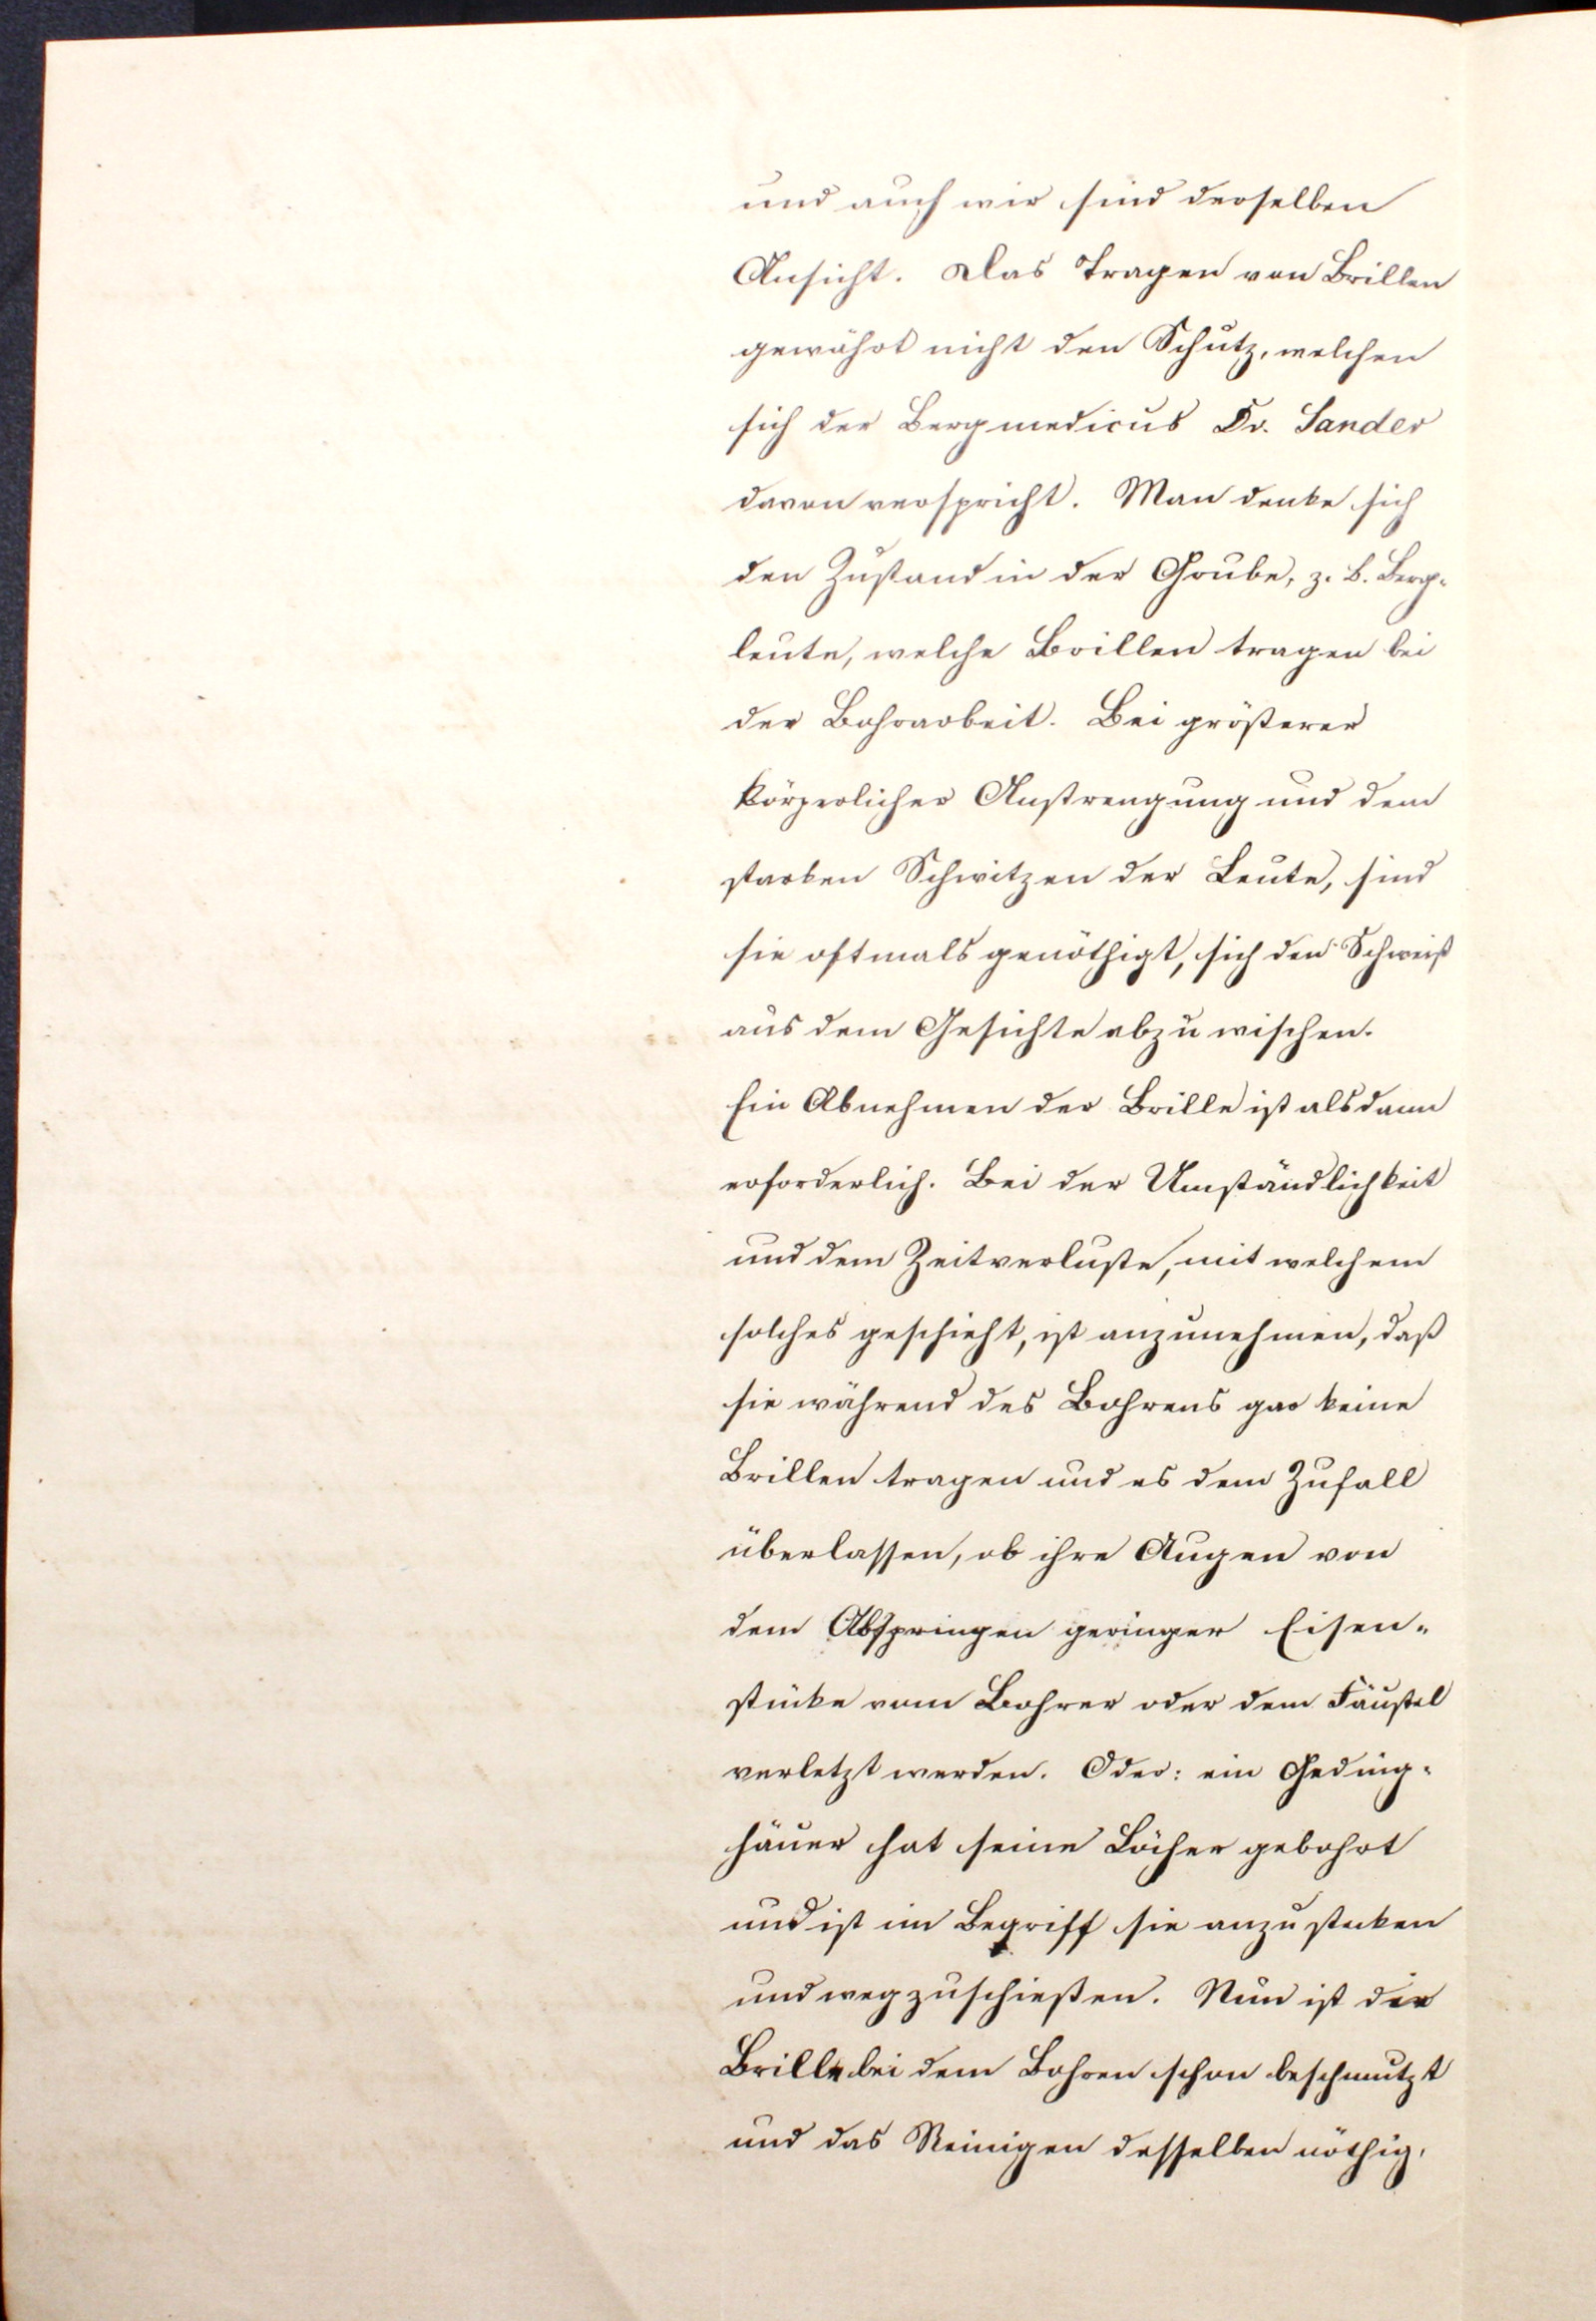 und auch wir sind derselben
Ansicht. Das Tragen von Brillen
gewährt nicht den Schutz, welchen
sich der Bergmedicus Dr. Sander
davon verspricht. Man denke sich
den Zustand in der Grube, z. B. Berg-
leute, welche Brillen tragen bei
der Bohrarbeit. Bei größerer
körperlicher Anstrengung und dem
starken Schwitzen der Leute, sind
sie oftmals genöthigt, sich den Schweiß
aus dem Gesichte abzuwischen.
Ein Abnehmen der Brille ist alsdann
erforderlich. Bei der Umständlichkeit
und dem Zeitverluste, mit welchem
solches geschieht, ist anzunehmen, daß
sie während des Bohrens gar keine
Brillen tragen und es dem Zufall
überlassen, ob ihre Augen von
dem Abspringen geringer Eisen-
stücke vom Bohrer oder dem Fäustel
verletzt werden. Oder: ein Geding-
häuer hat seine Löcher gebohrt
und ist im Begriff sie anzustecken
und wegzuschießen. Nun ist die
Brille bei dem Bohren schon beschmutzt
und das Reinigen desselben nöthig,